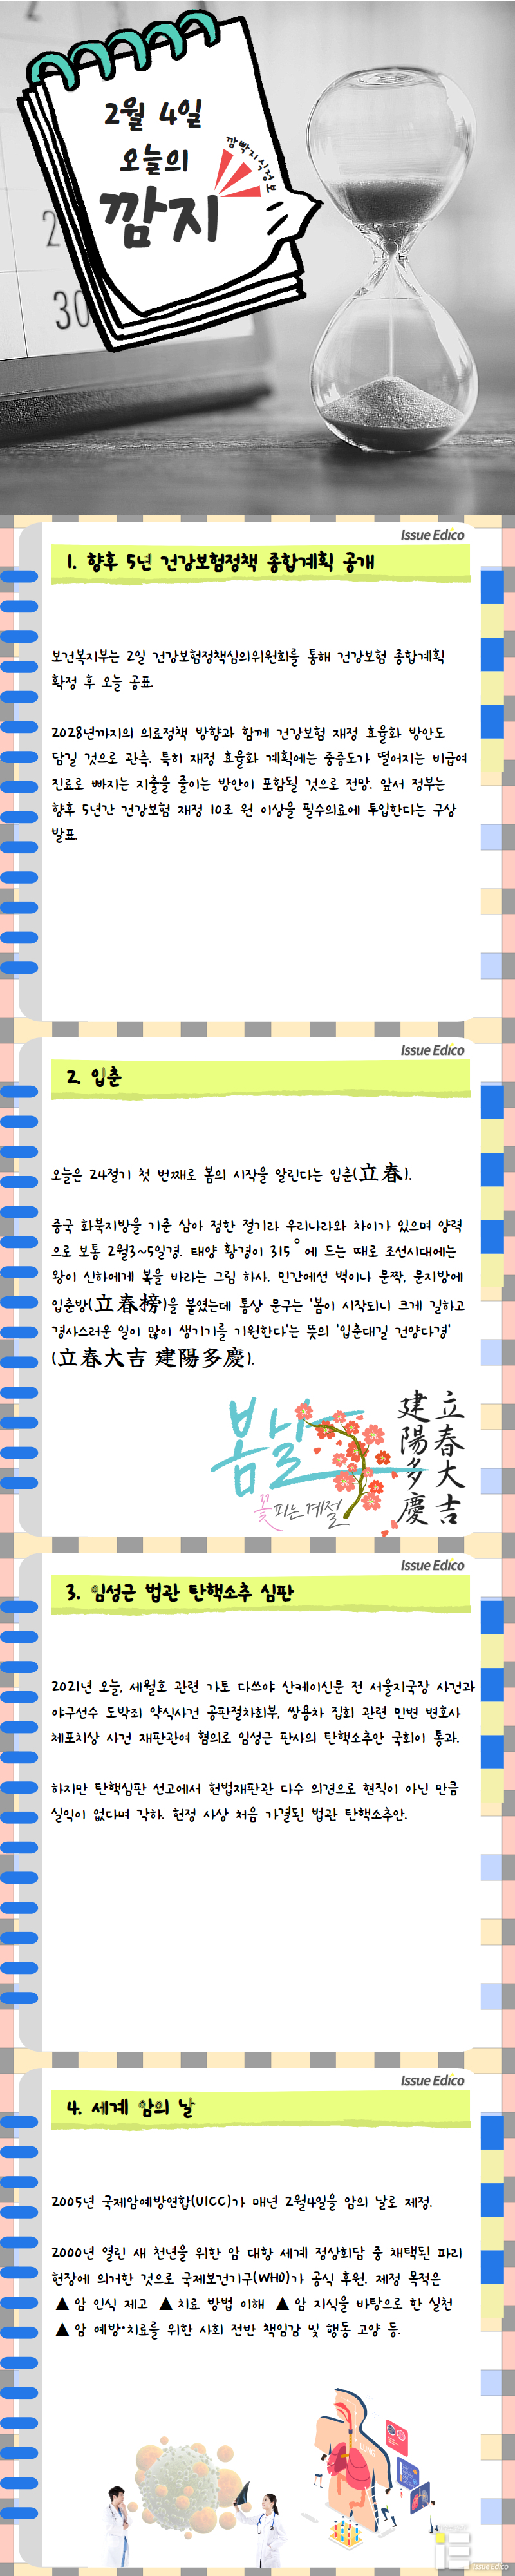 2월 4일
오늘의
깜지
깜빡지식정보
2
30
Issue Edico
1. 향후 5년 건강보험정책 종합계획 공개
보건복지부는 2일 건강보험정책심의위원회를 통해 건강보험 종합계획
확정 후 오늘 공표.
2028년까지의 의료정책 방향과 함께 건강보험 재정 효율화 방안도
담길 것으로 관측. 특히 재정 효율화 계획에는 중증도가 떨어지는 비급여
진료로 빠지는 지출을 줄이는 방안이 포함될 것으로 전망. 앞서 정부는
향후 5년간 건강보험 재정 10조 원 이상을 필수의료에 투입한다는 구상
발표.
Issue Edico
2. 입춘
오늘은 24절기 첫 번째로 봄의 시작을 알린다는 입춘(立春).
중국 화북지방을 기준 삼아 정한 절기라 우리나라와 차이가 있으며 양력
으로 보통 2월3~5일경. 태양 황경이 315°에 드는 때로 조선시대에는
왕이 신하에게 복을 바라는 그림 하사. 민간에선 벽이나 문짝, 문지방에
입춘방(立春榜)을 붙였는데 통상 문구는 '봄이 시작되니 크게 길하고
경사스러운 일이 많이 생기기를 기원한다'는 뜻의 '입춘대길 건양다경'
(立春大吉 建陽多慶).
봄날
꽃피는 계절
立春大吉
建陽多慶
Issue Edico
3. 임성근 법관 탄핵소추 심판
2021년 오늘, 세월호 관련 가토 다쓰야 산케이신문 전 서울지국장 사건과
야구선수 도박죄 약식사건 공판절차회부, 쌍용차 집회 관련 민변 변호사
체포치상 사건 재판관여 혐의로 임성근 판사의 탄핵소추안 국회이 통과.
하지만 탄핵심판 선고에서 헌법재판관 다수 의견으로 현직이 아닌 만큼
실익이 없다며 각하. 헌정 사상 처음 가결된 법관 탄핵소추안.
Issue Edico
4. 세계 암의 날
2005년 국제암예방연합(UICC)가 매년 2월4일을 암의 날로 제정.
2000년 열린 새 천년을 위한 암 대항 세계 정상회담 중 채택된 파리
헌장에 의거한 것으로 국제보건기구(WHO)가 공식 후원. 제정 목적은
▲암 인식 제고 ▲치료 방법 이해 ▲암 지식을 바탕으로 한 실천
▲암 예방·치료를 위한 사회 전반 책임감 및 행동 고양 등.
iE
Issue Edico